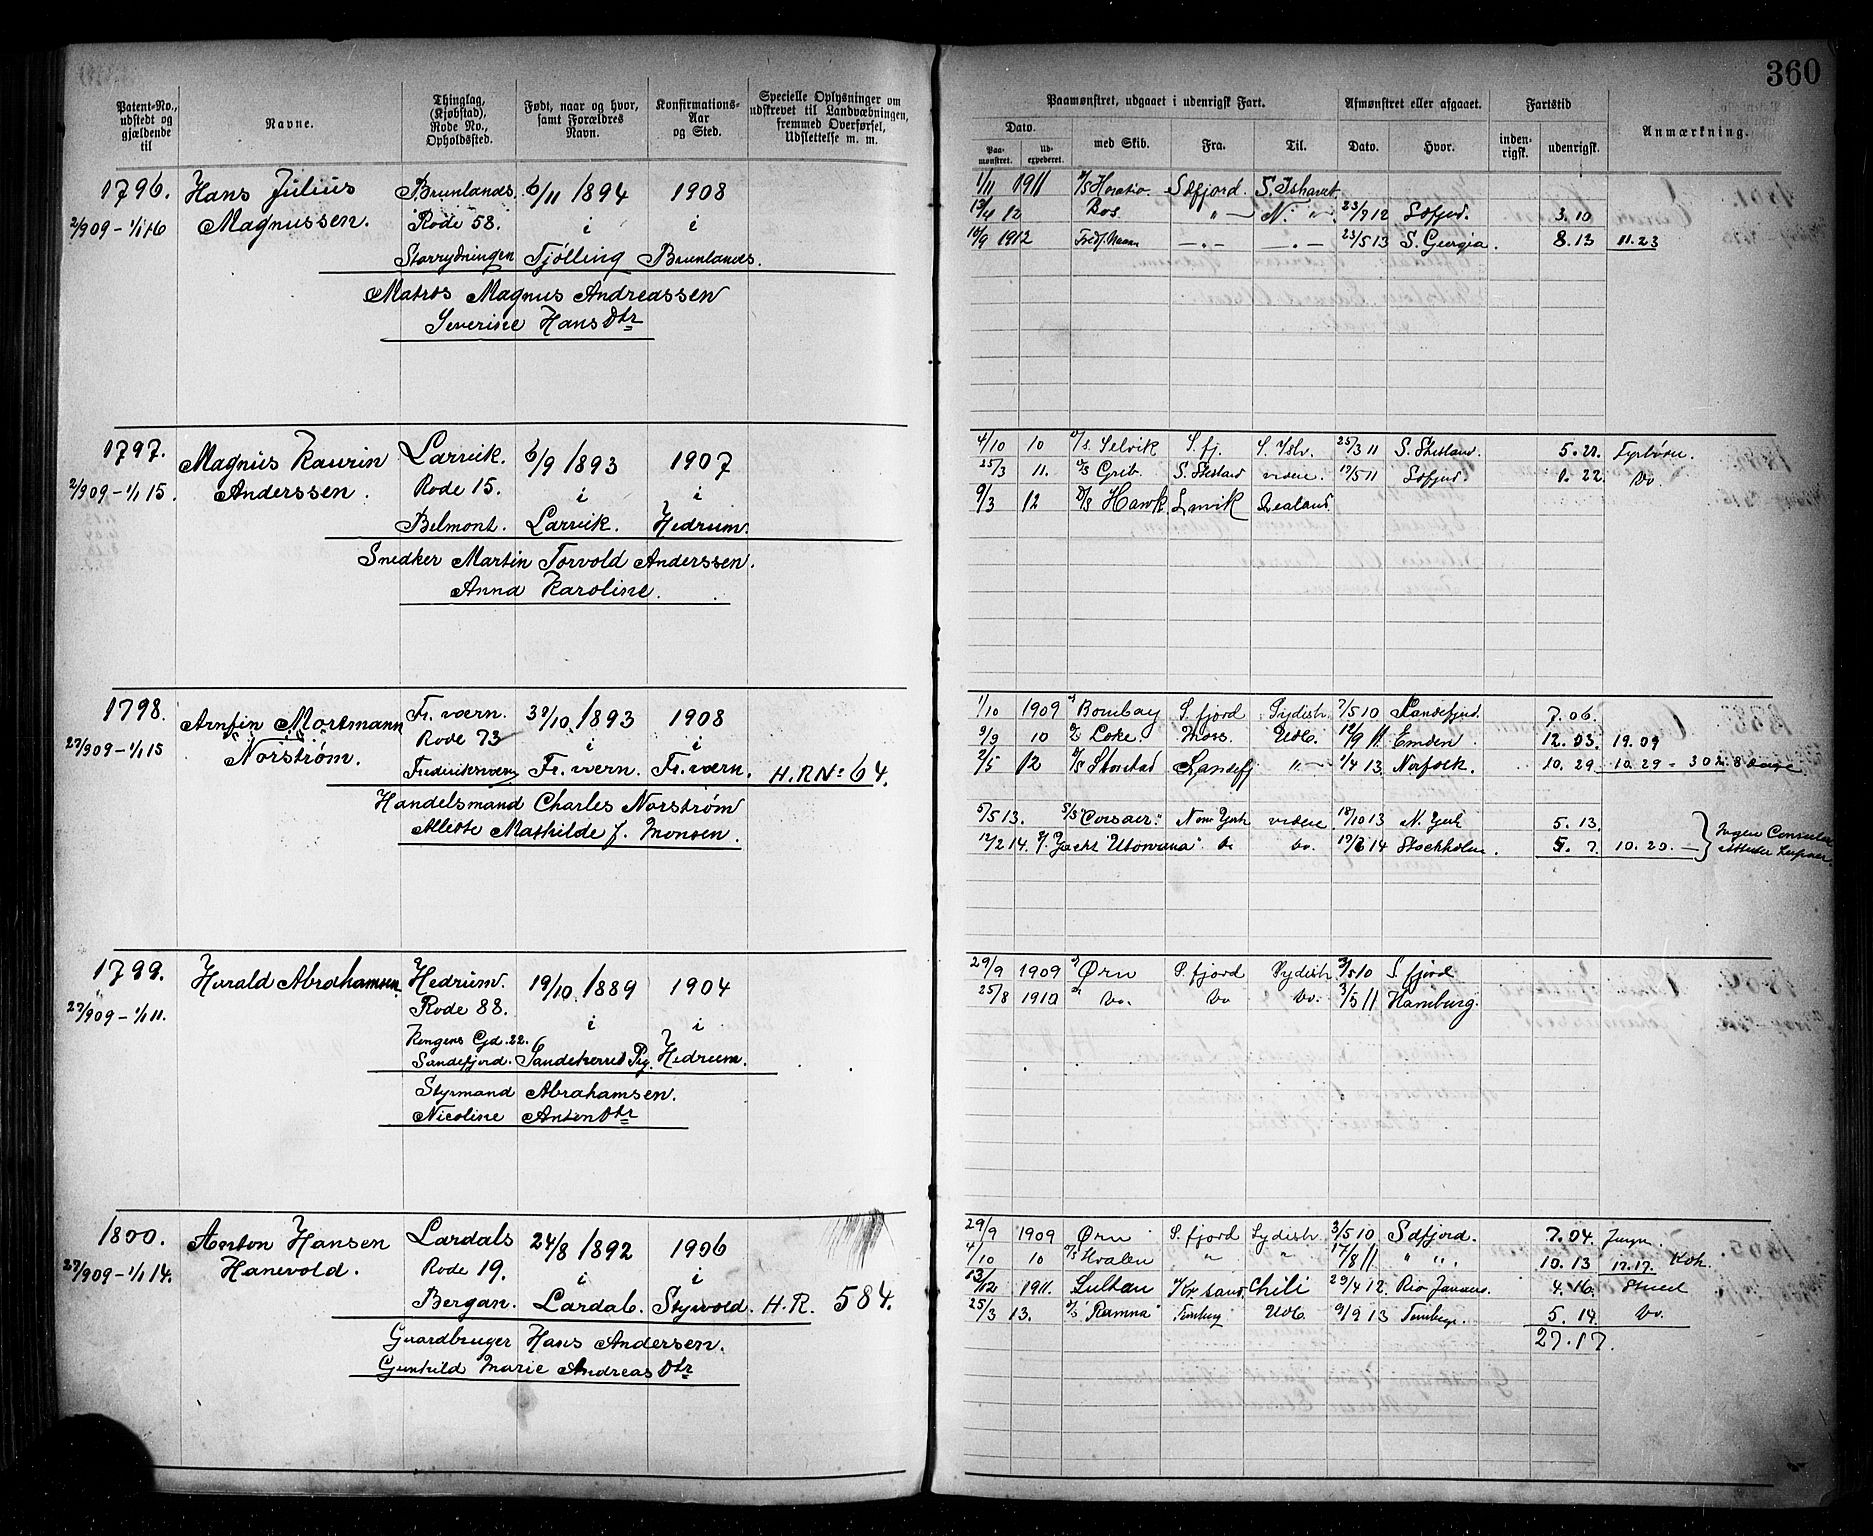 360
Patent-No., udstedt og gjældende til
Navne.
Thinglag, (Kjøbstad), Rode No., Opholdssted.
Født, naar og hvor, samt Forældres Navn.
Konfirmations-Aar og Sted.
Specielle Oplysninger om udskrevet til Landvæbningen, fremmed Overførsel, Udslettelse m. m.
Paamønstret, udgaaet i udenrigsk Fart.
Afmønstret eller afgaaet.
Fartstid
Anmærkning.
Dato. med Skib. Fra. Til. Dato. Hvor. inden-rigsk. udenrigsk.
Paa-mønstret. Ud-expederet.
1796. Hans Julius Brunlands. 6/11 1894 1908
2/9 09 - 1/1 16 Magnussen. Rode 58. i i
Storrydningen Tjølling Brunlands.
Matros Magnus Andreassen
Severine Hans Dtr
1/11 1911 Horatio Sdfjord. S. Ishavet
13/4 12 Bos. " N. " 23/9 12 Sdfjord. 3.10
16/9 1912 23/5 13 S. Georgia. 8.13 11.23
1797. Magnus Kaurin Larvik. 6/9 1893 1907
2/9 09 - 1/1 15. Anderssen. Rode 15. i i
Belmont. Larvik. Hedrum.
Snedker Martin Torvold Anderssen.
Anna Karoline.
4/10 10 Selvik S. fj. S. Ishv. 25/3 11 S. Shetland. Fyrbøder.
25/3 11. Grib. S. Shetland videre. 17/5 11 Sdfjord. Do.
9/3 12 D/S Hawk Larvik Zealand
1798. Arnfin Mortmann Fr. værn. 1893 1908
27/9 09 - 1/1 15 Norstrøm. Rode 73 i i
Frederiksværn Fr. værn. Fr. værn. H. R No 64.
Handelsmand Charles Norstrøm
Allette Mathilde J. Monsen.
1/10 1909 Bombay S. fjord Sydish. 7/5 10 Sandefjord. 7.06.
9/9 10 Loke Moss. Udl. 12/9 11. Emden. 12.03. 19.09
2/5 12 Storstad Sandefj " 1/4 13 Norfolk. 10.29 10.29 - 302
5/5 13. "Corsair" New York videre 18/10 13 N. York 5.13.
12/2 14. Yacht "Utowana" do do. 14 Stockholm. 5.7. 10.20. Ingen
1799. Harald Abrahamsen. Hedrum. 19/10. 1889 1904
27/9 09 - 1/1 11. Rode 88. i i
Kongens Gd. 22.
Sandefjord. Sandeherred Pg. Hedrum.
Styrmand Abrahamsen.
Nicoline Anton Dtr
29/9 1909 Ørn S. fjord Sydish 3/5 10 S. fjord
25/8 1910 Do. Do Do. 3/5 11 Hamburg.
1800. Anton Hansen Lardals 24/8 1892 1906
27/9 09 - 1/1 14. Hanevold. Rode 19. i i
Bergan. Lardal. Styrvold. H. R. 584.
Gaardbruger Hans Andersen.
Gunhild Marie Andreas Dtr
29/9 1909 Ørn S. fjord Sydish. 3/5 10 Sdfjord. 7.04.
4/10 10 Hvalen " " 17/8 11 " " 10.13 17.17. Kok.
13/12 1911. Sultan Kr sand. Chili 29/4 12. Rio Janeiro. 4.16.
25/3 13. "Ramna" Tønsberg Udl. 9/9 13 5.14. Do.
27.17.